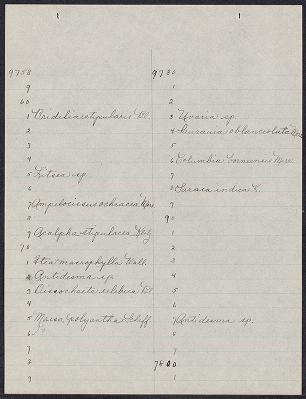 1 1
9758
9
60
1 Bridelia stipularis Bl.
2
3
4
5 Litsea sp.
6
7 Ampelocissus ochracea Merr
8
9 Acalpha stipulacea Klotz
70
1 Itea macrophylla Wall.
2 Antidesma sp.
3 Dissochaeta celebica Bl
4
5 Maesa polyantha Scheff
6
7
8
9
9780
1
2
3 Uvaria sp.
4 oblanceolata Merr
5
6 Columbia borneensis Merr.
7
8 Saraca indica L.
9
90
1
2
3
4
5
6
7 Antidesma sp.
8
9
9800
1